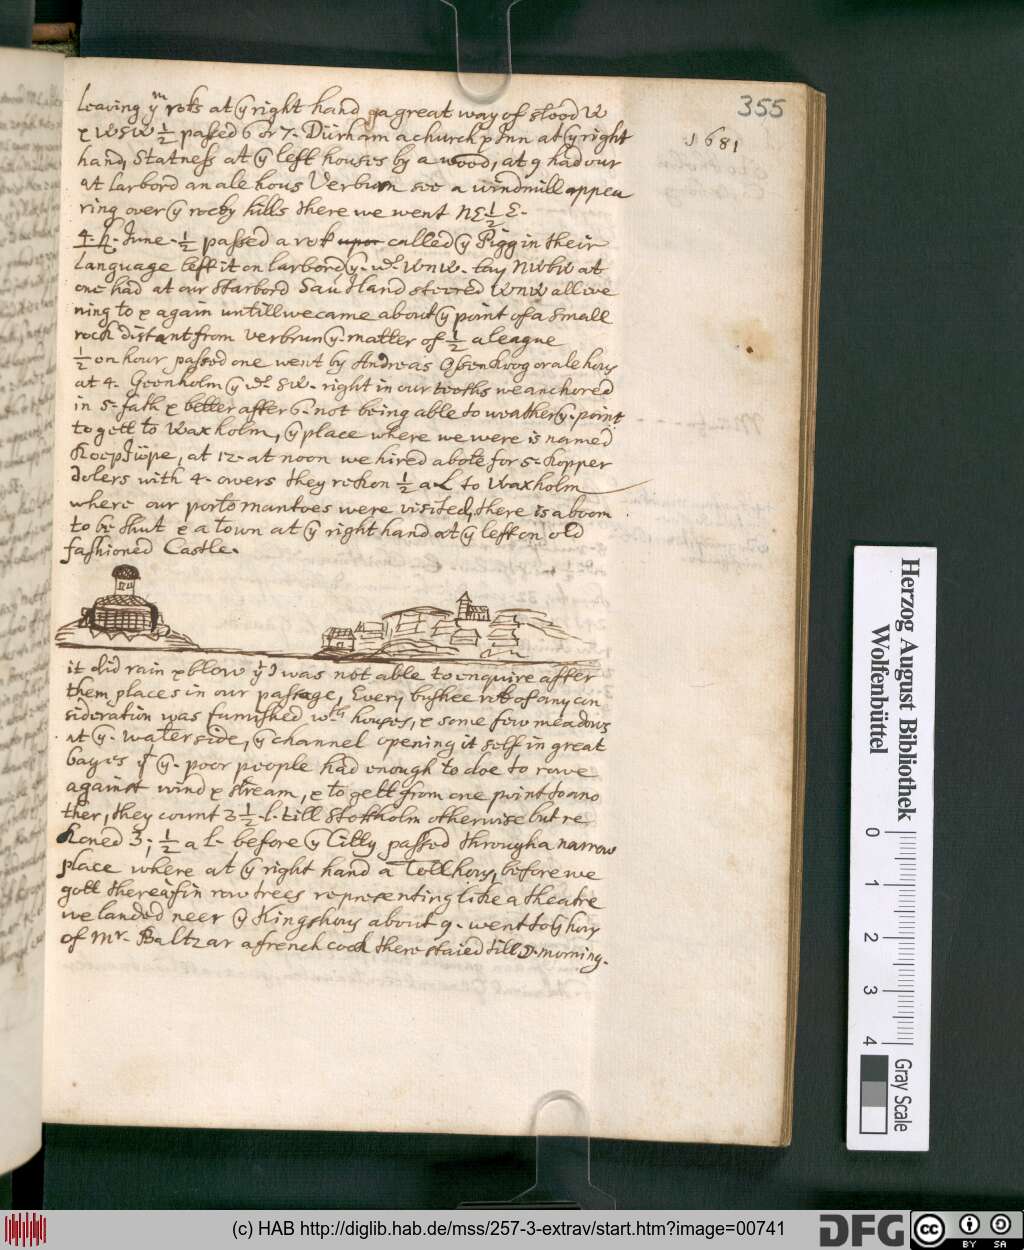 355
1681
leaving yͫ roks at ẙ right hand a great way of stood W
& WSW ½ passed 6 or 7. Dürham a church & Inn at ẙ right
hand, Statness at ẙ left houses by a wood, at 9 had our
at larbord an ale hous Verbum see a windmill appea
ring over ẙ rocky hills there we went NE ½ E.
4. ♄. June. ½ passed a rok upor called ẙ Pigg in their
language left it on larbord, ẙ. wd. WNW. lay NWbW at
one had at our starbord Sau Iland steered WNW all eve
ning to & again untill we came about ẙ point of a small
rock distant from Verbrun ẙ. matter of ½ a league
½ on hour passed one went by Andreas Ossen Kroog or ale hous
at 4. Geenholm ẙ wd. SW. right in our tooths we anchored
in 5. fath & better after 6. not being able to weather ẙ. point
to gett to Waxholm, ẙ place where we were is named
KoepJüpe, at 12. at noon we hired a bote for 5. Kopper
dolers with 4. owers they rekon ½ a L to Waxholm
where our portomantoes were visited, there is a boom
to be shut & a town at ẙ right hand at ẙ left on old
fashioned Castle.
it did rain & blow yͭ I was not able to enquire affter
them places in our passage, Every bushee rok of any con
sideration was furnished wth houses, & some few meadows
at ẙ. waterside, ẙ channel opening it self in great
bayes yͭ ẙ. poor people had enough to doe to rowe
against wind & stream, & to gett from one point to ano
ther, they count 3 ½ l. till Stokholm otherwise but re
koned 3; ½ a l. before ẙ Citty passed through a narrow
place where at ẙ right hand a Tollhous, before we
gott thereafin row trees representing like a theatre
we landed neer ẙ Kingshous about 9. went to ẙ hous
of Mr. Baltzar a french cock there staied till ☽. morning.
Herzog August Bibliothek
Wolfenbüttel
0 1 2 3 4
Gray Scale
(c) HAB http://diglib.hab.de/mss/257-3-extrav/start.htm?image=00741
DFG
CC BY SA